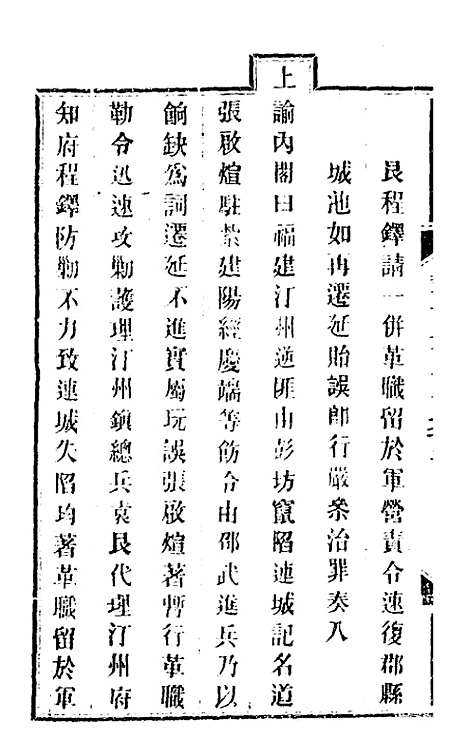 艮程鐸請一併革職留於軍營責令速復郡縣
城池如再遷延貽誤卽行嚴叅治罪奏入
上諭內閣曰福建汀州逆匪由彭坊竄陷連城記名道
張啟煊駐紮建陽經慶端等飭令由邵武進兵乃以
餉缺爲詞遷延不進實屬玩誤張啟煊著暫行革職
勒令迅速攻勦護理汀州鎮總兵袁艮代理汀州府
知府程鐸防勦不力致連城失陷均著革職留於軍